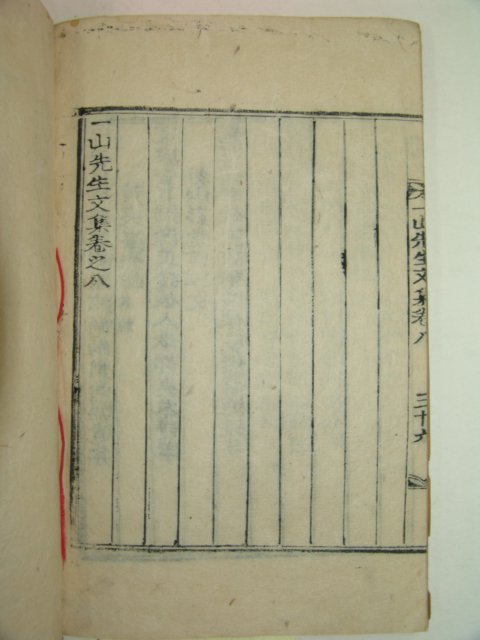 一山先生文集卷八
三十六
一山先生文集卷之八